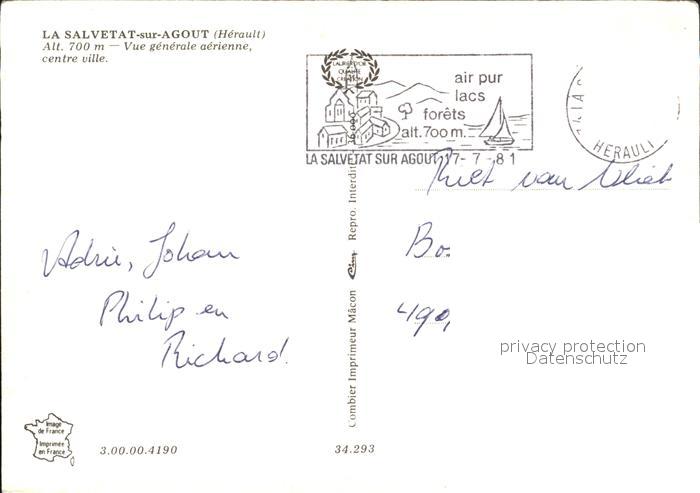 LA SALVETAT-sur-AGOUT (Hérault)
Alt. 700 m — Vue générale aérienne,
centre ville.
LAURIER D'OR
QUALITÉ
CRÉATION
air pur
lacs
forêts
alt. 700 m.
LA SALVETAT SUR AGOUT 17-7-81
HERAULT
Riet van Vliet
Bo.
490,
Adrie, Johan
Philip en
Richard.
Combier Imprimeur Mâcon Cim Repro. Interdite
privacy protection
Datenschutz
Image
de France
Imprimée
en France
3.00.00.4190
34.293